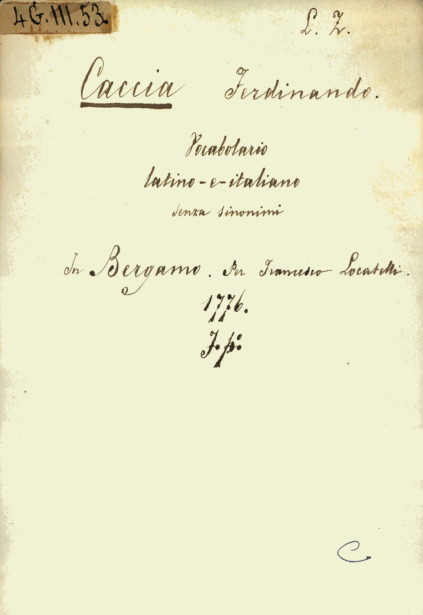 4G.III.53
L. Z.
Caccia Ferdinando.
Vocabolario
latino-e-italiano
senza sinonimi
In Bergamo. Per Francesco Locatelli.
1776.
C